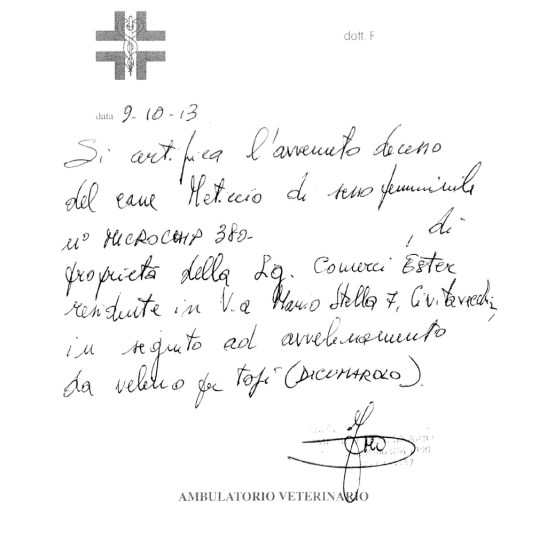 dott. F.
data 9-10-13
Si certifica l'avvenuto decesso
del cane Meticcio di sesso femminile
n° MICROCHIP 380- , di
proprietà della Sig. Comerci Ester
residente in Via Mario Stella 7, Civitavecchia,
in seguito ad avvelenamento
da veleno per topi (DICUMAROLO).
AMBULATORIO VETERINARIO